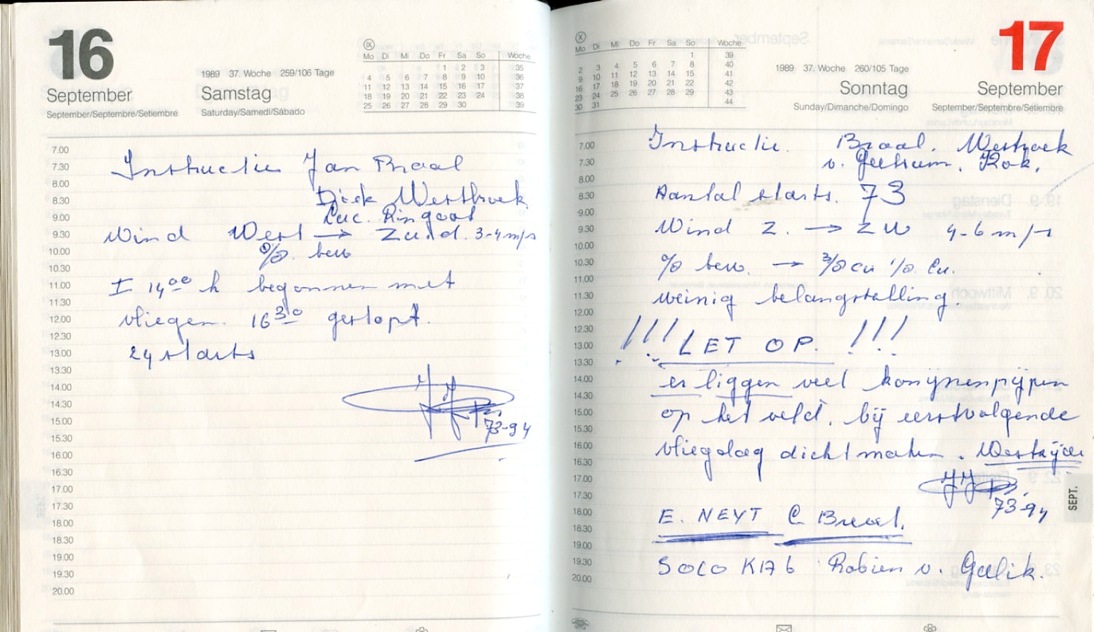 16
September
September/Septembre/Setiembre
1989 37. Woche 259/106 Tage
Samstag
Saturday/Samedi/Sábado
Mo Di Mi Do Fr Sa So Woche
1 2 3 35
4 5 6 7 8 9 10 36
11 12 13 14 15 16 17 37
18 19 20 21 22 23 24 38
25 26 27 28 29 30 39
7.00
7.30 Instructie Jan Braal
8.00
8.30 Dick Westbroek
9.00 Luc. Ringoot
9.30 Wind West → Zuid. 3-4 m/s
10.00 0/8 bew
10.30
11.00 ± 14⁰⁰ h begonnen met
11.30
12.00 vliegen. 16³⁰ gestopt.
12.30
13.00 24 starts
13.30
14.00
14.30
15.00 73-94
15.30
16.00
16.30
17.00
17.30
18.00
18.30
19.00
19.30
20.00
17
September
September/Septembre/Setiembre
1989 37. Woche 260/105 Tage
Sonntag
Sunday/Dimanche/Domingo
Mo Di Mi Do Fr Sa So Woche
1 39
2 3 4 5 6 7 8 40
9 10 11 12 13 14 15 41
16 17 18 19 20 21 22 42
23 24 25 26 27 28 29 43
30 31 44
7.00 Instructie. Braal. Westroek
7.30 v. Geersum. Kok.
8.00
8.30 Aantal starts. 73
9.00
9.30 Wind Z. → ZW 4-6 m/s
10.00
10.30 0/8 bew. → 3/8 cu 1/8 cu.
11.00
11.30 weinig belangstelling.
12.00
12.30 !!! LET OP. !!!
13.00
13.30
14.00 er liggen veel konijnenpijpen
14.30
15.00 op het veld, bij eerstvolgende
15.30
16.00 vliegdag dichtmaken.
16.30
17.00
17.30 73-94
18.00 E. NEYT C. Braal.
18.30
19.00
19.30 SOLO KA 6 Robien v. Galik.
20.00
SEPT.